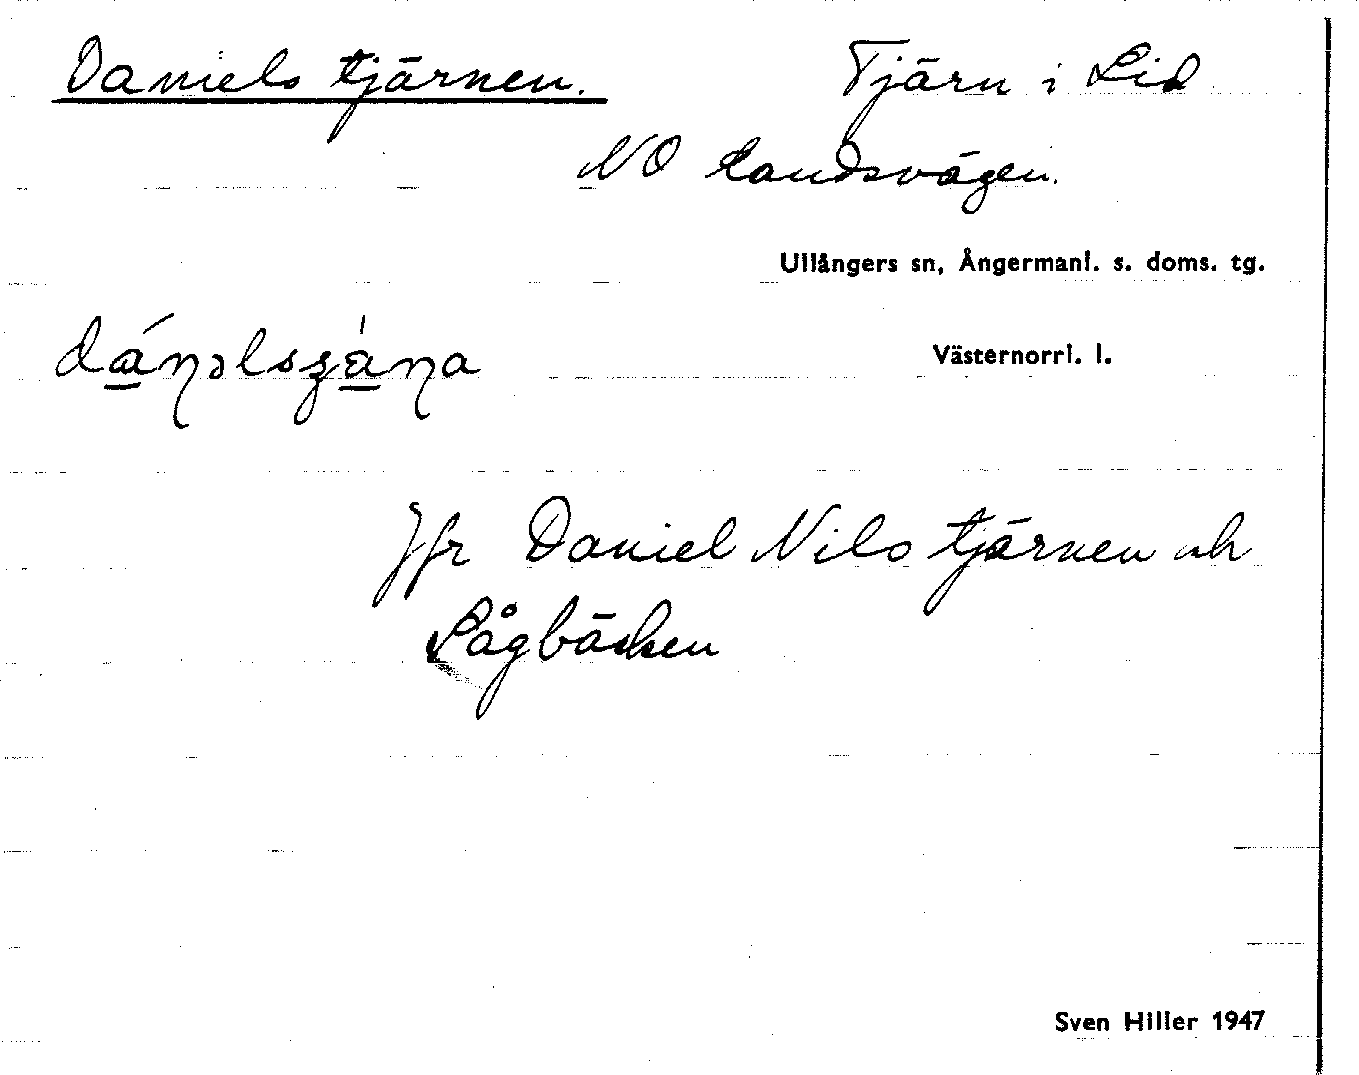 Daniels tjärnen. Tjärn i Lid
NO landsvägen.
Ullångers sn, Ångermanl. s. doms. tg.
Västernorrl. l.
Jfr Daniel Nils tjärnen och
Lågbäcken
Sven Hiller 1947